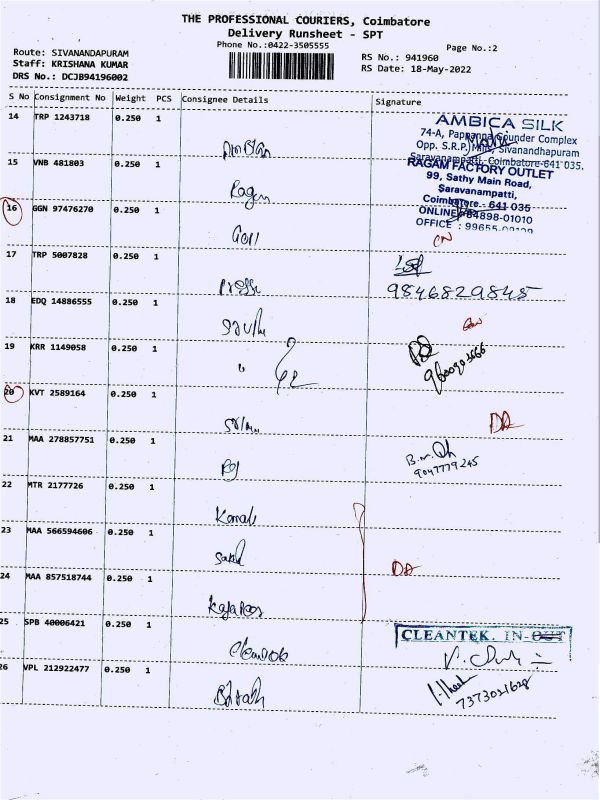 THE PROFESSIONAL COURIERS, Coimbatore
Delivery Runsheet - SPT
Phone No.:0422-3505555
Page No.:2
Route: SIVANANDAPURAM
Staff: KRISHANA KUMAR
DRS No.: DCJB94196002
RS No.: 941960
RS Date: 18-May-2022
S No Consignment No Weight PCS Consignee Details Signature
14 TRP 1243718 0.250 1
AMBICA SILK
74-A, Pappanna Gounder Complex
Opp. S.R.P. Mills, Sivanandhapuram
Saravanampatti, Coimbatore-641 035.
15 VNB 481803 0.250 1
Ragam
RAGAM FACTORY OUTLET
99, Sathy Main Road,
Saravanampatti,
Coimbatore - 641 035
ONLINE: 84898-01010
OFFICE : 99655-
16 GGN 97476270 0.250 1
CN
17 TRP 5007828 0.250 1
9846829845
18 EDQ 14886555 0.250 1
19 KRR 1149058 0.250 1
"
20 KVT 2589164 0.250 1
DL
21 MAA 278857751 0.250 1
9047779245
22 MTR 2177726 0.250 1
23 MAA 566594606 0.250 1
24 MAA 857518744 0.250 1
25 SPB 40006421 0.250 1
CLEANTEK. IN-OUT
26 VPL 212922477 0.250 1
7373021628